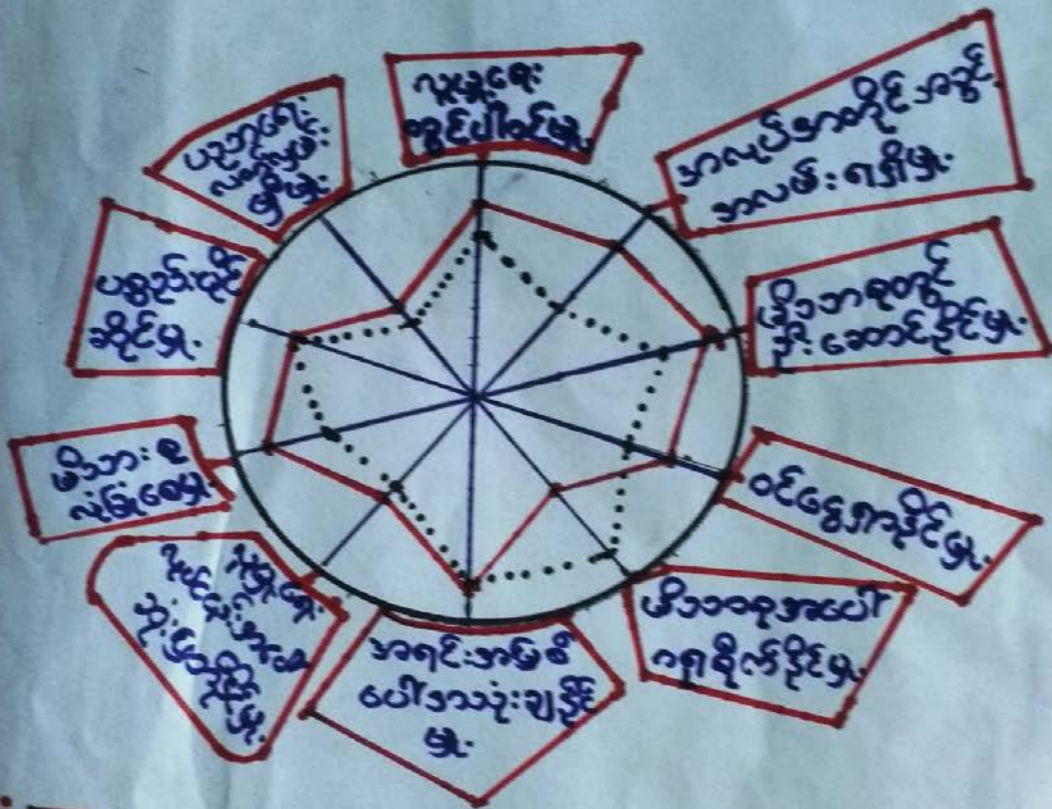 လူမှုရေး
တွင်ပါဝင်မှု
အလုပ်အတိုင်အခွင့်
အလမ်းရရှိမှု
မိသားစုတွင်
ဦးဆောင်နိုင်မှု
ဝင်ငွေရှာနိုင်မှု
မိသားစုအပေါ်
ဂရုစိုက်နိုင်မှု
အရင်းအမြစ်
ပေါ်အသုံးချနိုင်
မှု
လူမှုရေး
ဆုံးဖြတ်နိုင်
မှု
မိသားစု
လုံခြုံစေမှု
ပစ္စည်းပိုင်
ဆိုင်မှု
ပညာရေး
မှု